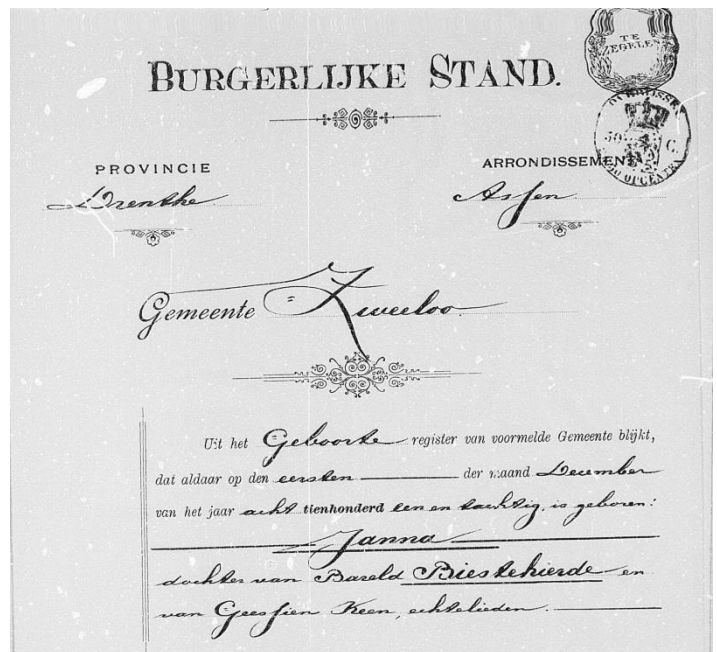 TE
ZEGELEN
BURGERLIJKE STAND.
OVERIJSSEL
50 C.
OPCENTEN
PROVINCIE
Drenthe
ARRONDISSEMENT
Assen
Gemeente Zweeloo
Uit het Geboorte register van voormelde Gemeente blijkt,
dat aldaar op den eersten der maand December
van het jaar acht tienhonderd een en tachtig, is geboren:
Janna
dochter van Bareld Biestehierde en
van Geessien Keen, echtelieden.